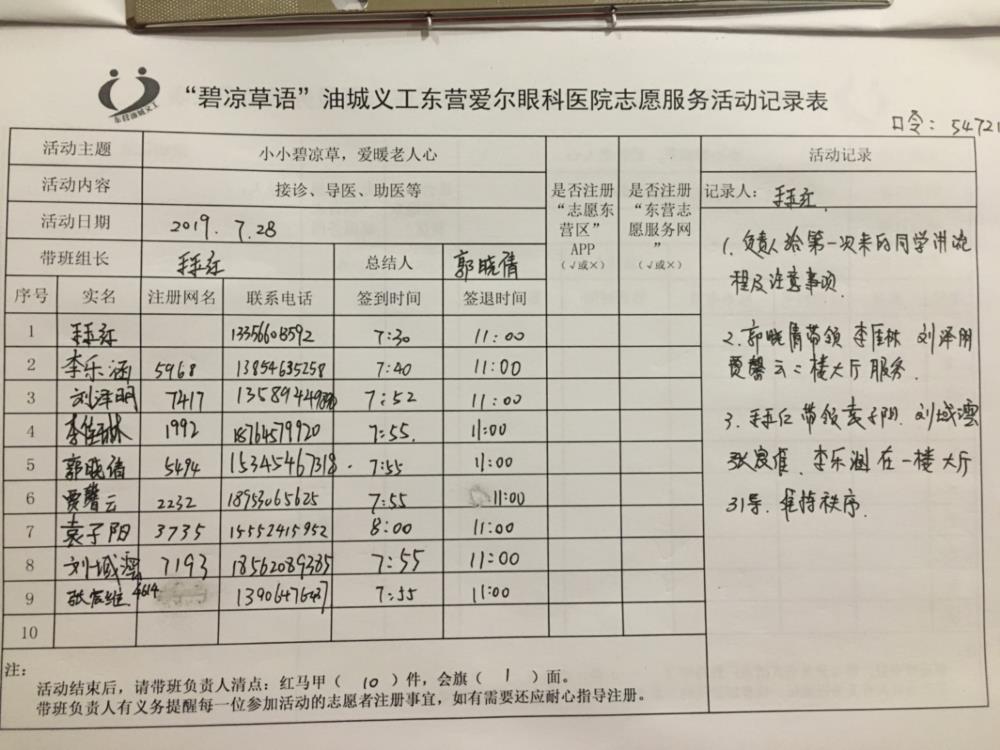 东营油城义工
“碧凉草语”油城义工东营爱尔眼科医院志愿服务活动记录表
口令：54721
活动主题 小小碧凉草，爱暖老人心
活动内容 接诊、导医、助医等
活动日期 2019.7.28
带班组长 总结人 郭晓倩
是否注册“志愿东营区”APP（√或×）
是否注册“东营志愿服务网”（√或×）
序号 实名 注册网名 联系电话 签到时间 签退时间
1 7:30 11:00
2 李乐涵 5968 13854635258 7:40 11:00
3 刘泽明 7417 7:52 11:00
4 李佳琳 1992 18764579920 7:55. 11:00
5 郭晓倩 5494 15345467318. 7:55 11:00
6 贾馨云 2232 18953065625 7:55 11:00
7 袁子阳 3735 15552415952 8:00 11:00
8 刘域澐 7193 18562089385 7:55 11:00
9 4614 7:55 11:00
10
活动记录
记录人：
1. 负责人给第一次来的同学讲流
程及注意事项.
2. 郭晓倩带领 李佳林 刘泽明
贾馨云 二楼大厅服务.
3. 带领袁子阳. 刘域澐
李乐涵 在一楼大厅
引导. 维持秩序.
注：
活动结束后，请带班负责人清点：红马甲（ 10 ）件，会旗（ 1 ）面。
带班负责人有义务提醒每一位参加活动的志愿者注册事宜，如有需要还应耐心指导注册。